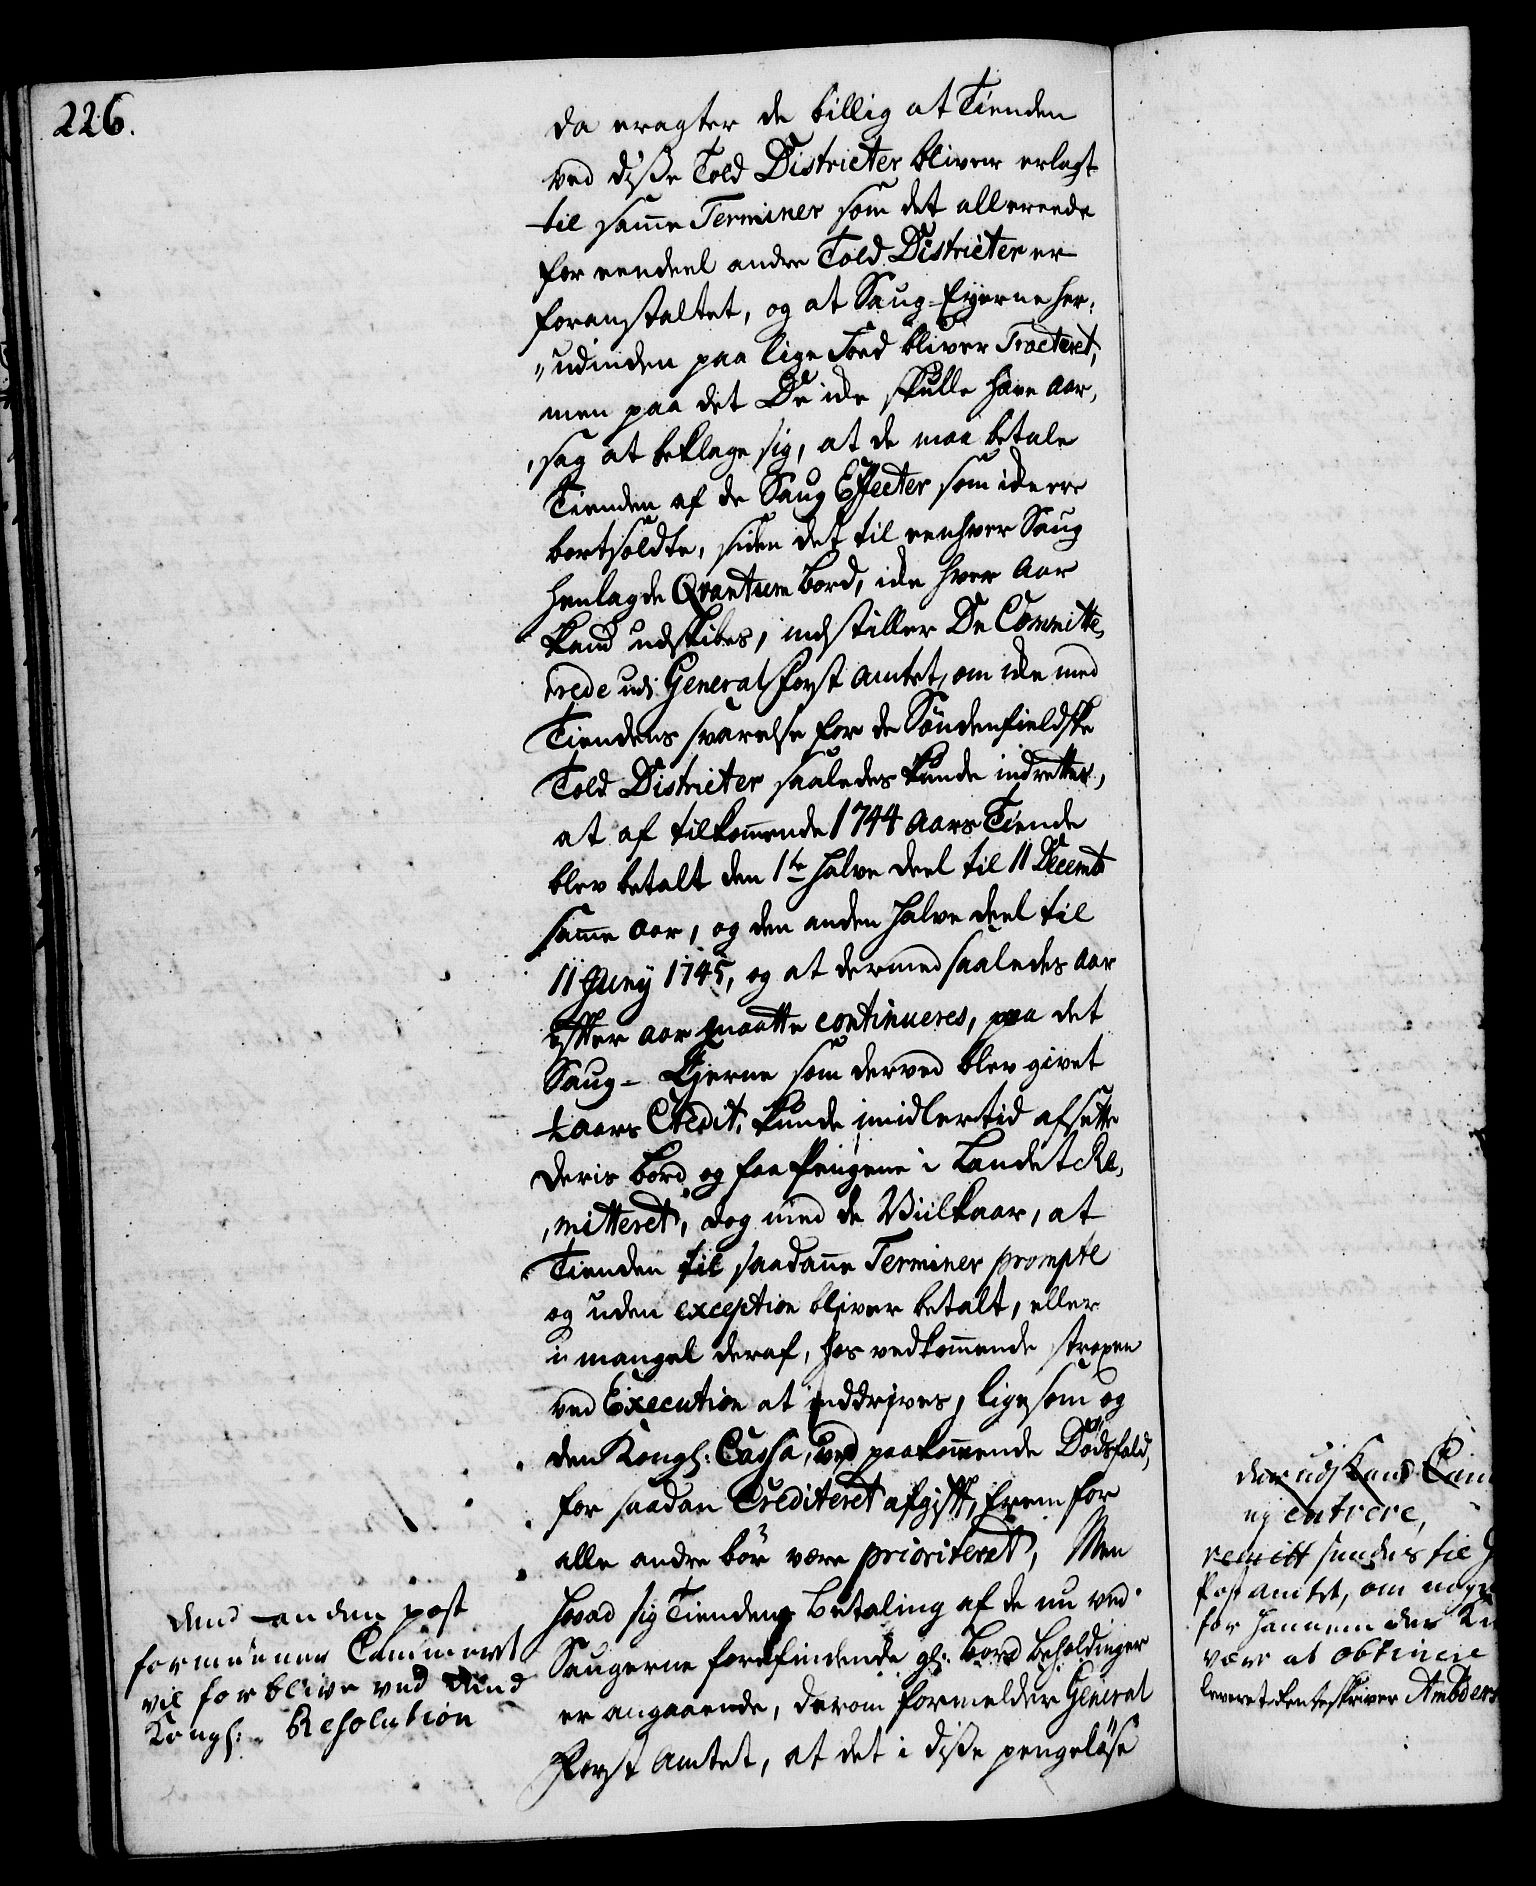 226.
da eragter de billig at Tienden
ved diße Told Districter bliver erlagt
til samme Terminer som det allereede
for eendeel andre Told Districter er
foranstaltet, og at Saug-Eyerne her,
„udinden paa lige Foed bliver Tracteret,
men paa det De icke skulle have aar,
„sag at beklage sig, at de maa betale
Tienden af de Saug Effecter som icke ere
bortsoldte, siden det til eenhver Saug
henlagde Qvantum bord, icke hver Aar
kand udskibes, indstiller De Committe,
„rede udi General Forst Amtet, om icke med
Tiendens svarelse for de Søndenfieldske
Told Districter saaledes kunde indrettes,
at af tilkommende 1744 Aars Tiende
blev betalt den 1te halve deel til 11 Decembr
samme Aar, og den anden halve deel til
11 Juny 1745, og at dermed saaledes Aar
effter Aar maatte continueres, paa det
Saug-Ejerne som derved blev givet
½ Aars Credit, kunde imidlertid afsette
deris bord og faa Pengene i Landet Re,
„mitteret, dog med de Viilkaar, at
Tienden til saadanne Terminer prompte
og uden exception bliver betalt, eller
i mangel deraf, hos vedkommende straxen
ved Execution at inddrives, ligesom og
den Kongl: Cassa, ved paakommende Dødsfald,
for saadan Crediteret afgifft, frem for
alle andre bør være prioriteret, Men
hvad sig Tiendens Betaling af de nu ved
Saugerne forefindende gl: Bord beholdinger
er angaaende, derom formelder General
Forst Amtet, at det i diße pengeløse
dend anden post
formeener Cammeret
vil forblive ved dend
Kongl: Resolution
der udj kand Cam
ej entrere,
remitt sendes til
Forst amtet, om nogen
for hannem der
være at obtinere